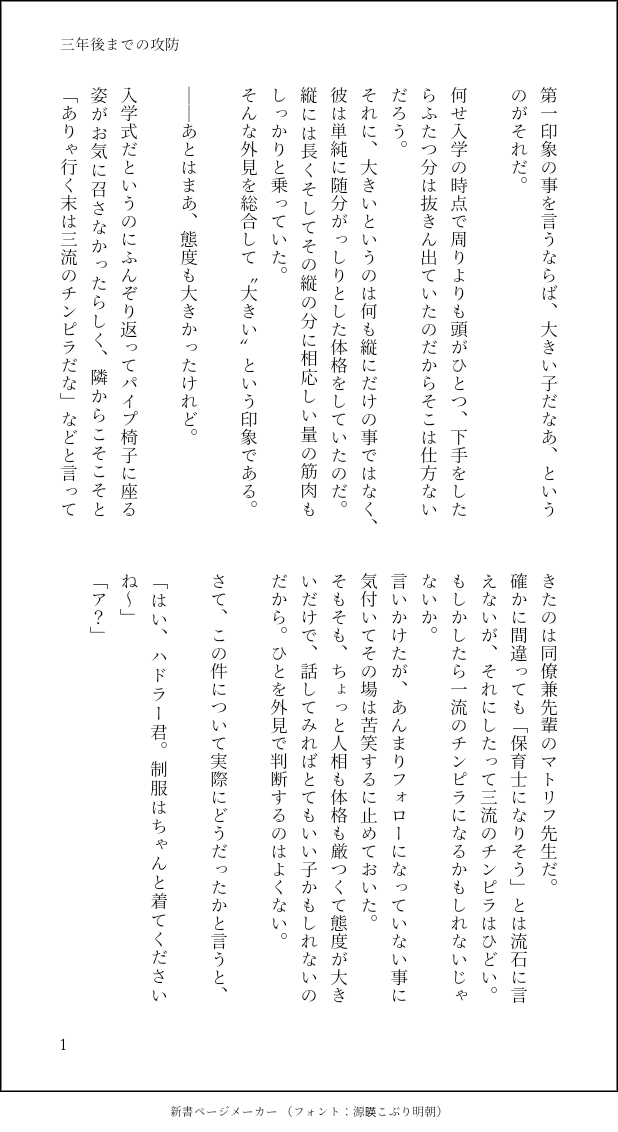 三年後までの攻防
第一印象の事を言うならば、大きい子だなあ、という
のがそれだ。
何せ入学の時点で周りよりも頭がひとつ、下手をした
らふたつ分は抜きん出ていたのだからそこは仕方ない
だろう。
それに、大きいというのは何も縦にだけの事ではなく、
彼は単純に随分がっしりとした体格をしていたのだ。
縦には長くそしてその縦の分に相応しい量の筋肉も
しっかりと乗っていた。
そんな外見を総合して〝大きい〟という印象である。
――あとはまあ、態度も大きかったけれど。
入学式だというのにふんぞり返ってパイプ椅子に座る
姿がお気に召さなかったらしく、隣からこそこそと
「ありゃ行く末は三流のチンピラだな」などと言って
きたのは同僚兼先輩のマトリフ先生だ。
確かに間違っても「保育士になりそう」とは流石に言
えないが、それにしたって三流のチンピラはひどい。
もしかしたら一流のチンピラになるかもしれないじゃ
ないか。
言いかけたが、あんまりフォローになっていない事に
気付いてその場は苦笑するに止めておいた。
そもそも、ちょっと人相も体格も厳つくて態度が大き
いだけで、話してみればとてもいい子かもしれないの
だから。ひとを外見で判断するのはよくない。
さて、この件について実際にどうだったかと言うと、
「はい、ハドラー君。制服はちゃんと着てください
ね～」
「ア？」
1
新書ページメーカー（フォント：源暎こぶり明朝）